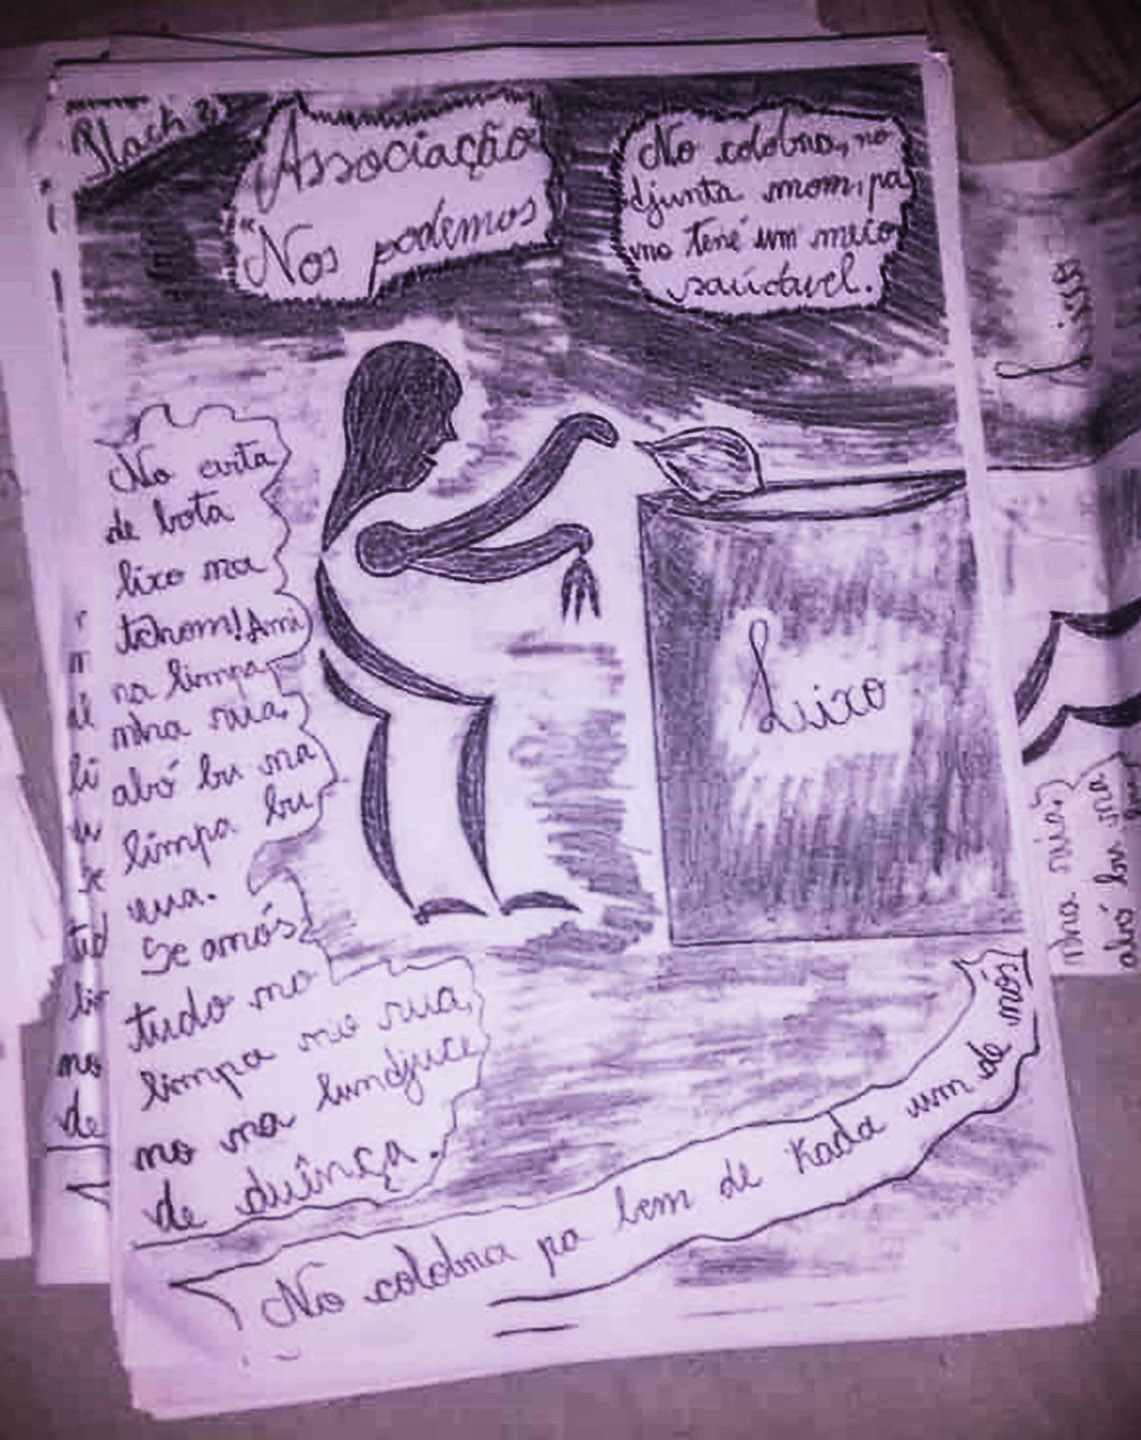 Associação
"Nos podemos
No colobra, no
djunta mom, pa
no tené um meio
saúdavel.
No evita
de bota
lixo na
tchom! Ami
na limpa
nha rua,
abó bu na
limpa bu
rua.
Se anós
tudo no
limpa no rua,
no na lundjuce
de duînça.
Lixo
No colobra pa bem de Kada um de nós
Lixo
nha rua,
abó bu na